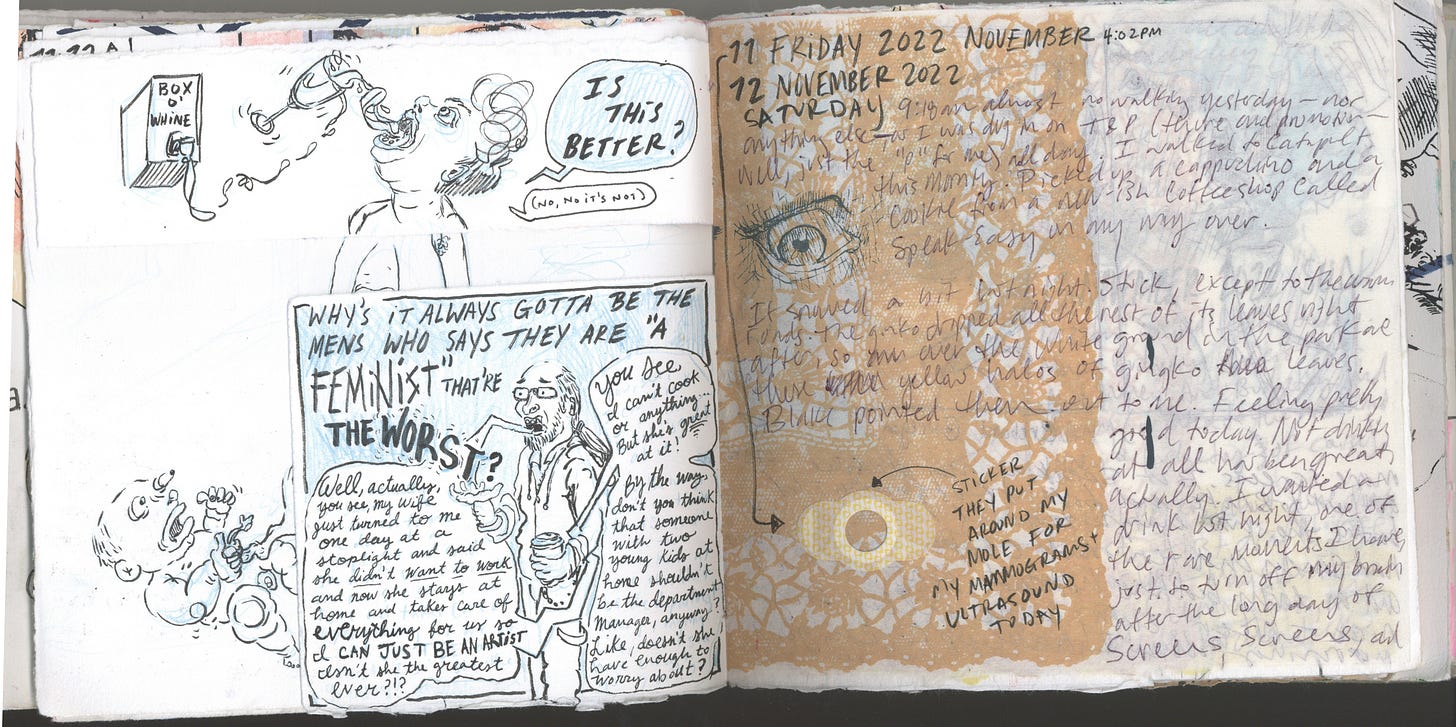 11.11 A
BOX
O'
WHINE
IS
THIS
BETTER?
(NO, NO IT'S NOT)
WHY'S iT ALWAYS GOTTA BE THE
MENS WHO SAYS THEY ARE "A
FEMiNIST" THAT'RE
THE WORST?
Well, actually,
you see, my wife
just turned to me
one day at a
stoplight and said
she didn't want to work
and now she stays at
home and takes care of
everything for us so
I CAN JUST BE AN ARTIST
Isn't she the greatest
ever?!?
You see,
I can't cook
or anything..
But she's great
at it,
By the way,
don't you think
that someone
with two
young kids at
home shouldn't
be the department
Manager, anyway?
Like, doesn't she
have enough to
worry about?
11 FRIDAY 2022 NOVEMBER 4:02PM
12 NOVEMBER 2022
SATURDAY 9:18am almost no walking yesterday – nor
anything else – as I was on T&P (tenure and promotion –
well, just the "p" for me) all day. I walked to Catapult
this morning. Picked up a cappuccino and a
Cookie from a new-ish coffeeshop called
Speak Easy on my way over.
It snowed a bit last night. Stick, except to the
roads. The ginko dropped all the rest of its leaves right
after, so over the white ground in the park are
there yellow halos of gingko leaves.
Blake pointed them out to me. Feeling pretty
good today. Not drinking
at all has been great,
actually. I wanted a
drink last night, one of
the rare moments I have,
just to turn off my brain
after the long day of
Screens Screens, and
STICKER
THEY PUT
AROUND MY
MOLE FOR
MY MAMMOGRAMS +
ULTRASOUND
TODAY